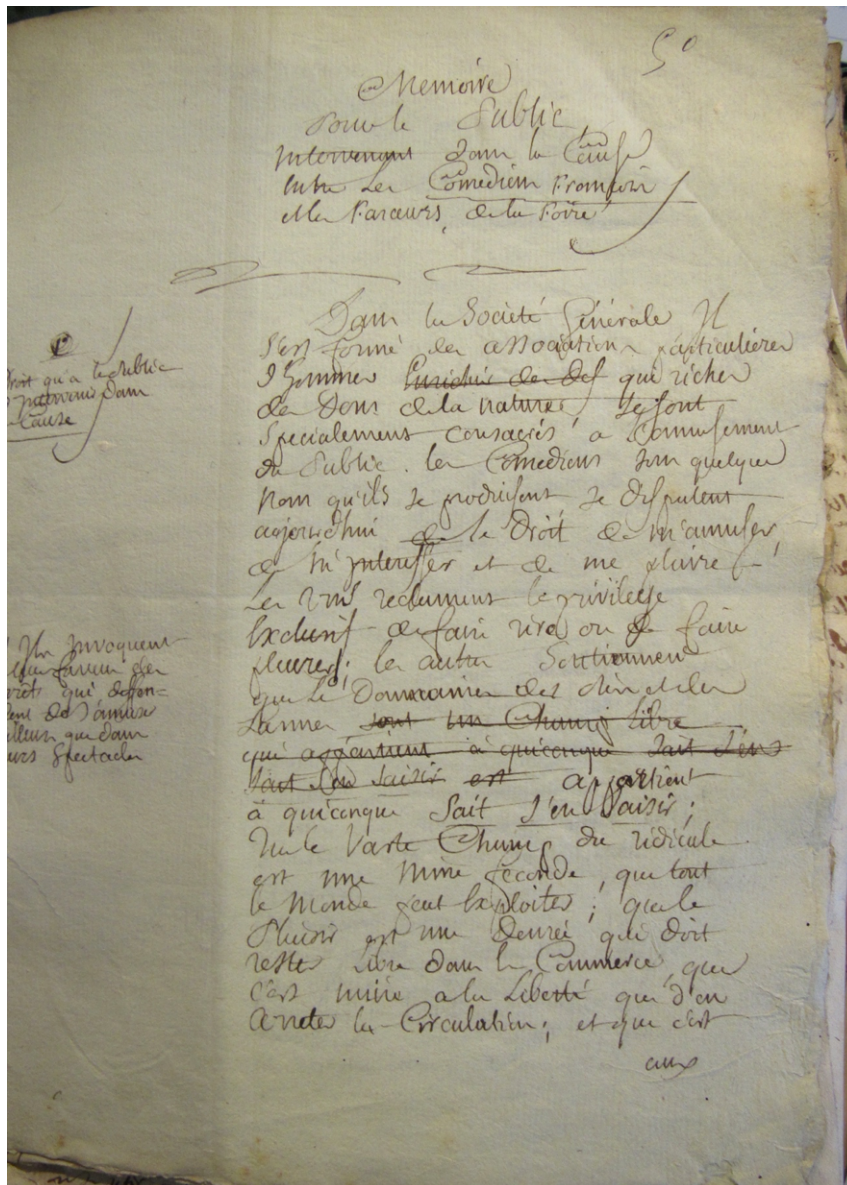 50
Memoire
Pour le Public
Intervenant dans la Cause
Entre Les Comediens François
et les Farceurs, de la Foire
Dans la Société Générale Il
s'est formé des associations particulieres
d'hommes Enrichis de des qui riches
des Dons de la nature se sont
specialement consacrés a l'amusement
du Public. les Comediens sous quelque
nom qu'ils se produisent se disputent
aujourd'hui de le Droit de m'amuser,
de m'interesser et de me plaire
Les uns reclament le privilege
Exclusif de faire rire ou de faire
pleurer; les autres soutiennent
que le Domaine des ris et des
Larmes sont un Champ libre
qui appartient à quiconque sait s'en
sait s'en saisir est appartient
à quiconque sait s'en saisir;
Que le Vaste Champ du ridicule
est une Mine feconde, que tout
le Monde peut Exploiter; que le
Plaisir est une denrée qui doit
rester Libre dans le Commerce, que
c'est nuire a la Liberté que d'en
Arreter la Circulation; et que c'est
aux
Droit qu'a le Public
d'intervenir dans
Cause
Ils Invoquent
leur faveur des
arrêts qui deffen=
dent de s'amuser
ailleurs que dans
leurs Spectacles